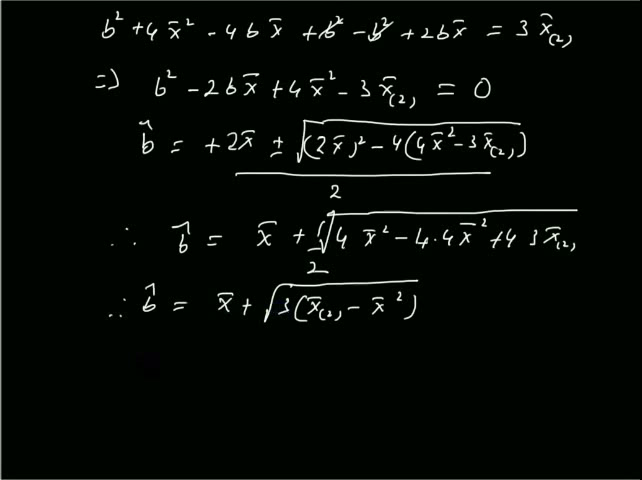 b² + 4x̄² - 4bx̄ + b² - b² + 2bx̄ = 3x̄₍₂₎
=) b² - 2bx̄ + 4x̄² - 3x̄₍₂₎ = 0
b̂ = +2x̄ ± √(2x̄)² - 4(4x̄² - 3x̄₍₂₎)
2
∴ b̂ = x̄ + 1/2 √4x̄² - 4·4x̄² + 4 3x̄₍₂₎
∴ b̂ = x̄ + √3(x̄₍₂₎ - x̄²)